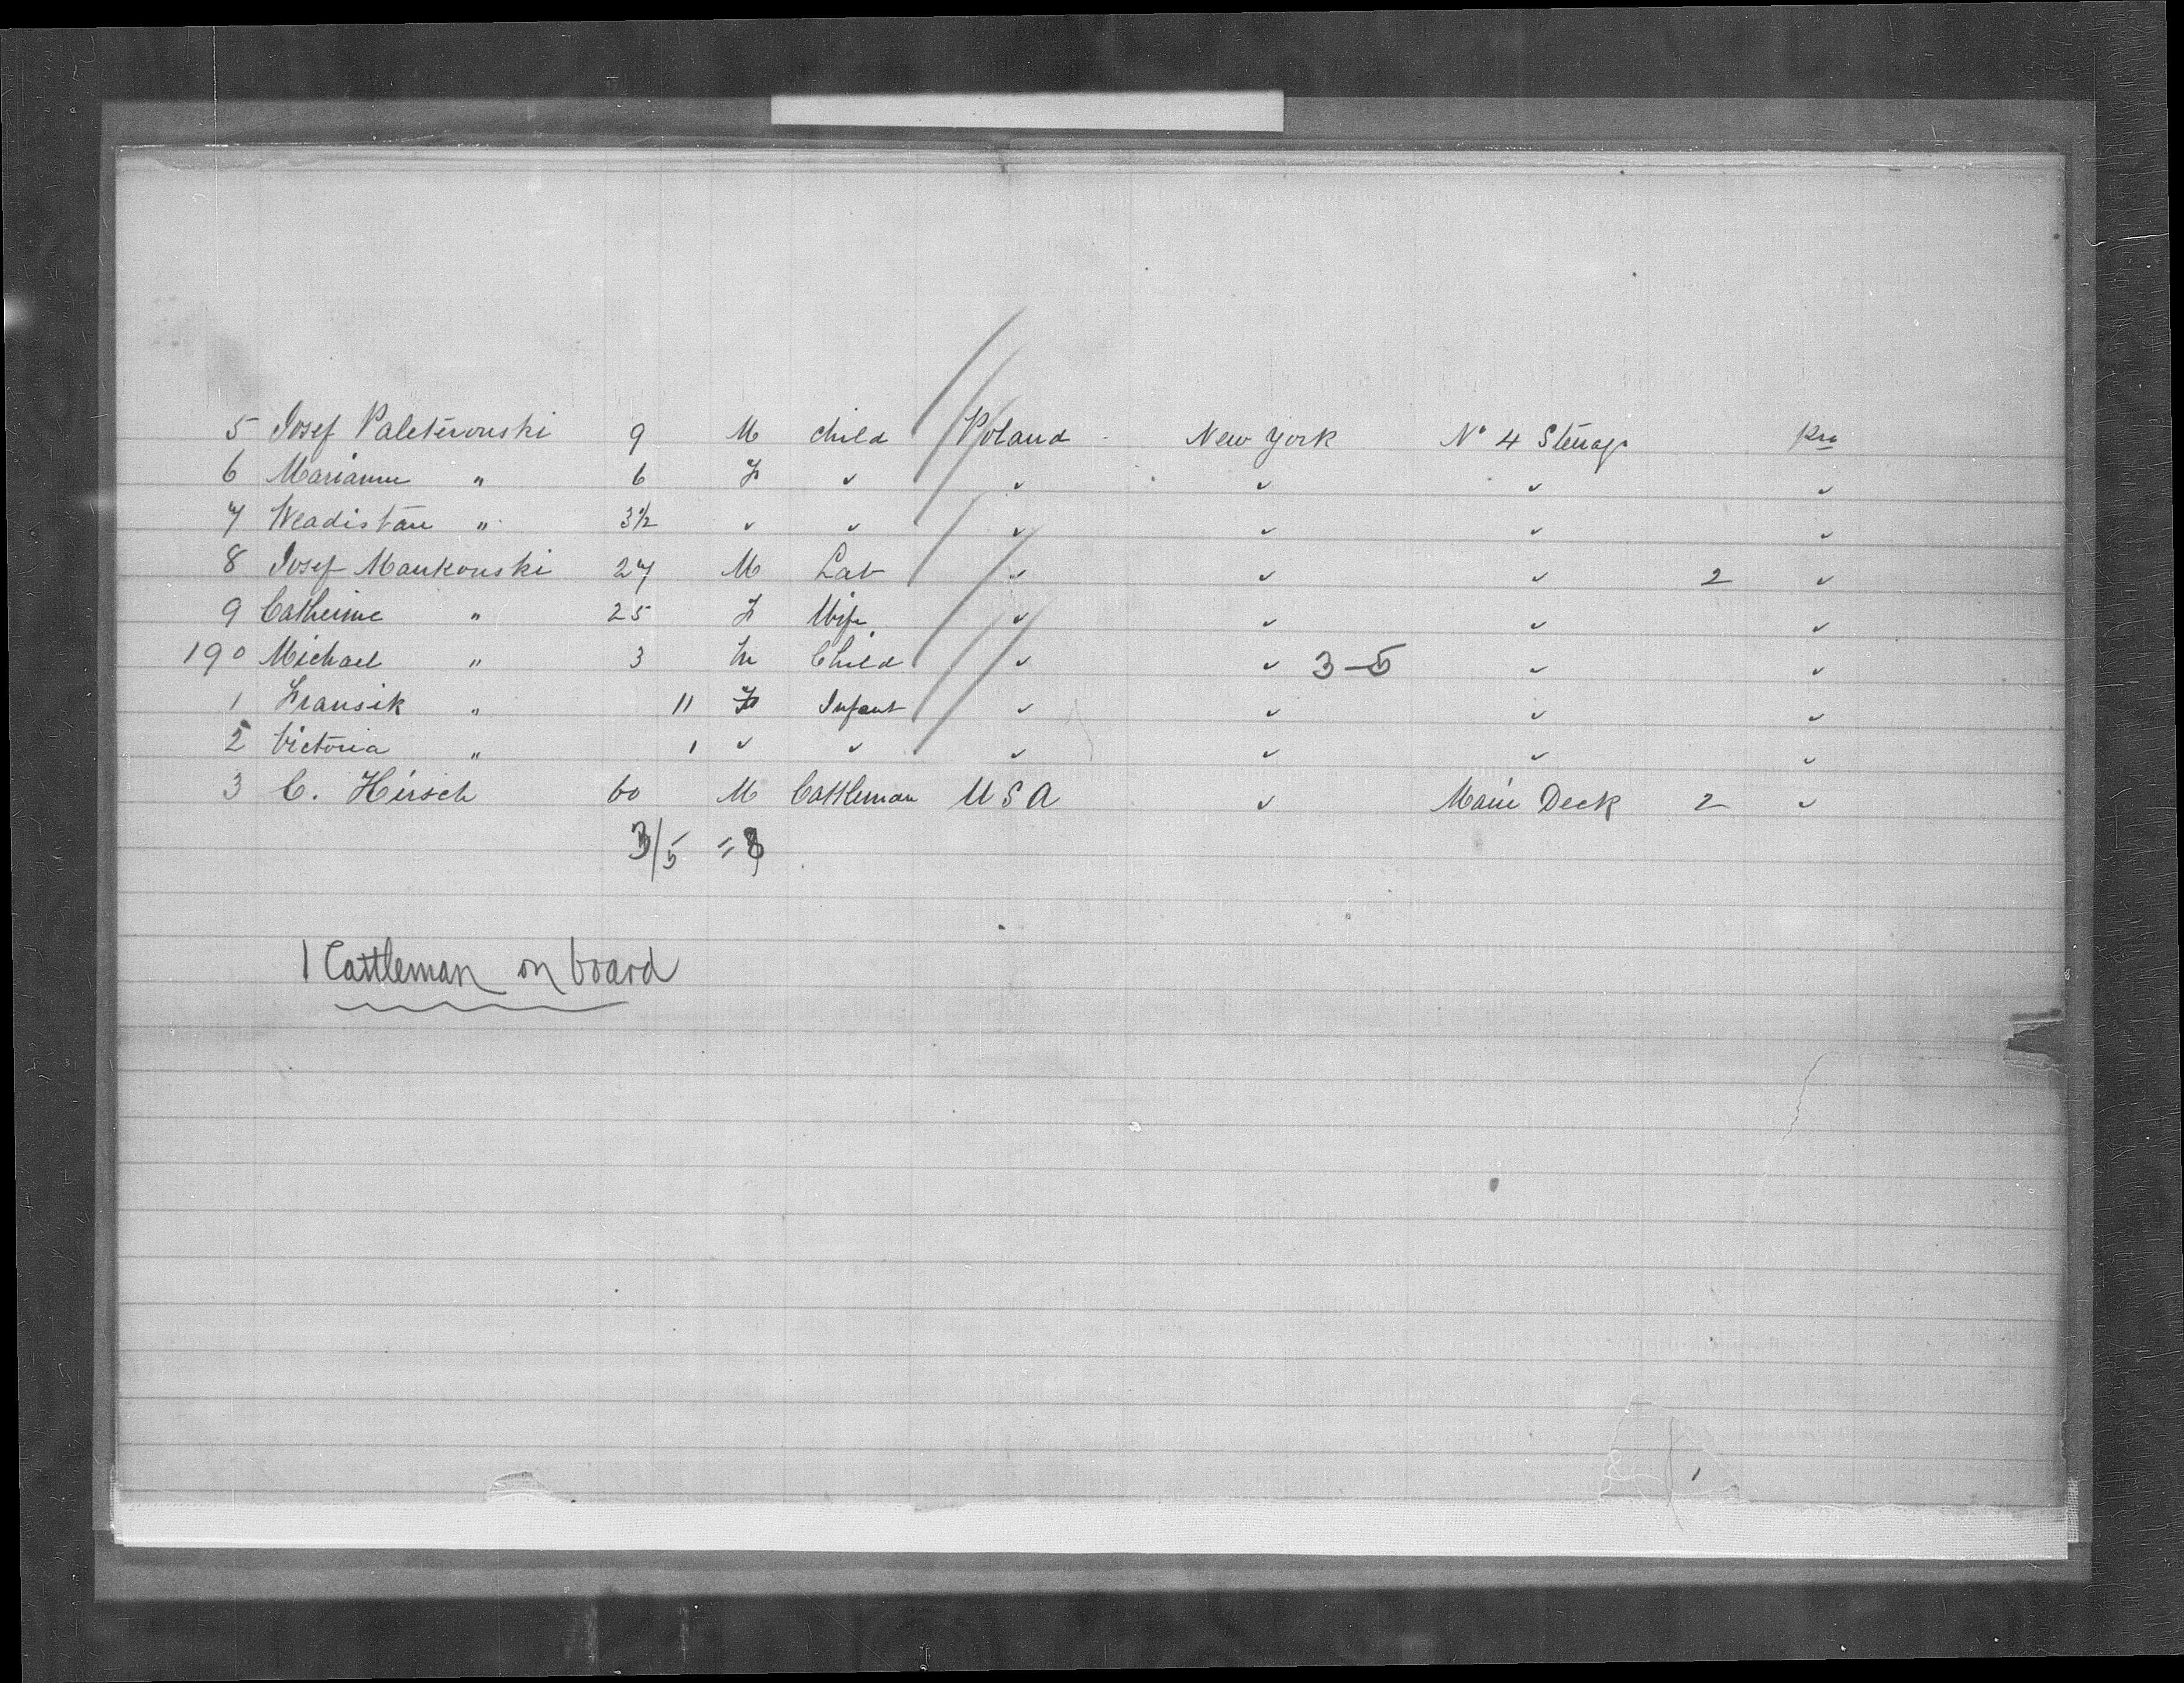 5 Josef Paleterouski 9 M child Poland New York No 4 Steerage Pro
6 Marianne " 6 F " " " " "
7 Wladistan " 3½ " " " " " "
8 Josef Mankouski 27 M Lab " " " 2 "
9 Catherine " 25 F Wife " " " "
190 Michael " 3 M Child " " 3-5 " "
1 Fransik " 11 F Infant " " " "
2 Victoria " 1 " " " " " "
3 C. Hirsch 60 M Cattleman U S A " Main Deck 2 "
3/5 = 8
1 Cattleman on board